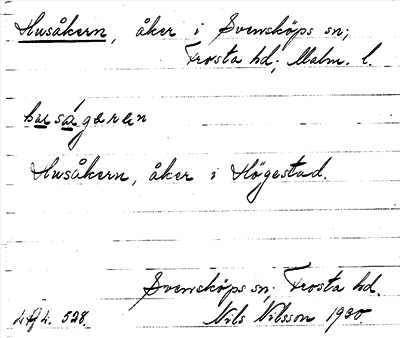 Husåkern, åker i Svensköps sn;
Frosta hd; Malm. l.
huságaren
Husåkern, åker i Högestad.
Svensköps sn; Frosta hd.
Nils Nilsson 1930
528.